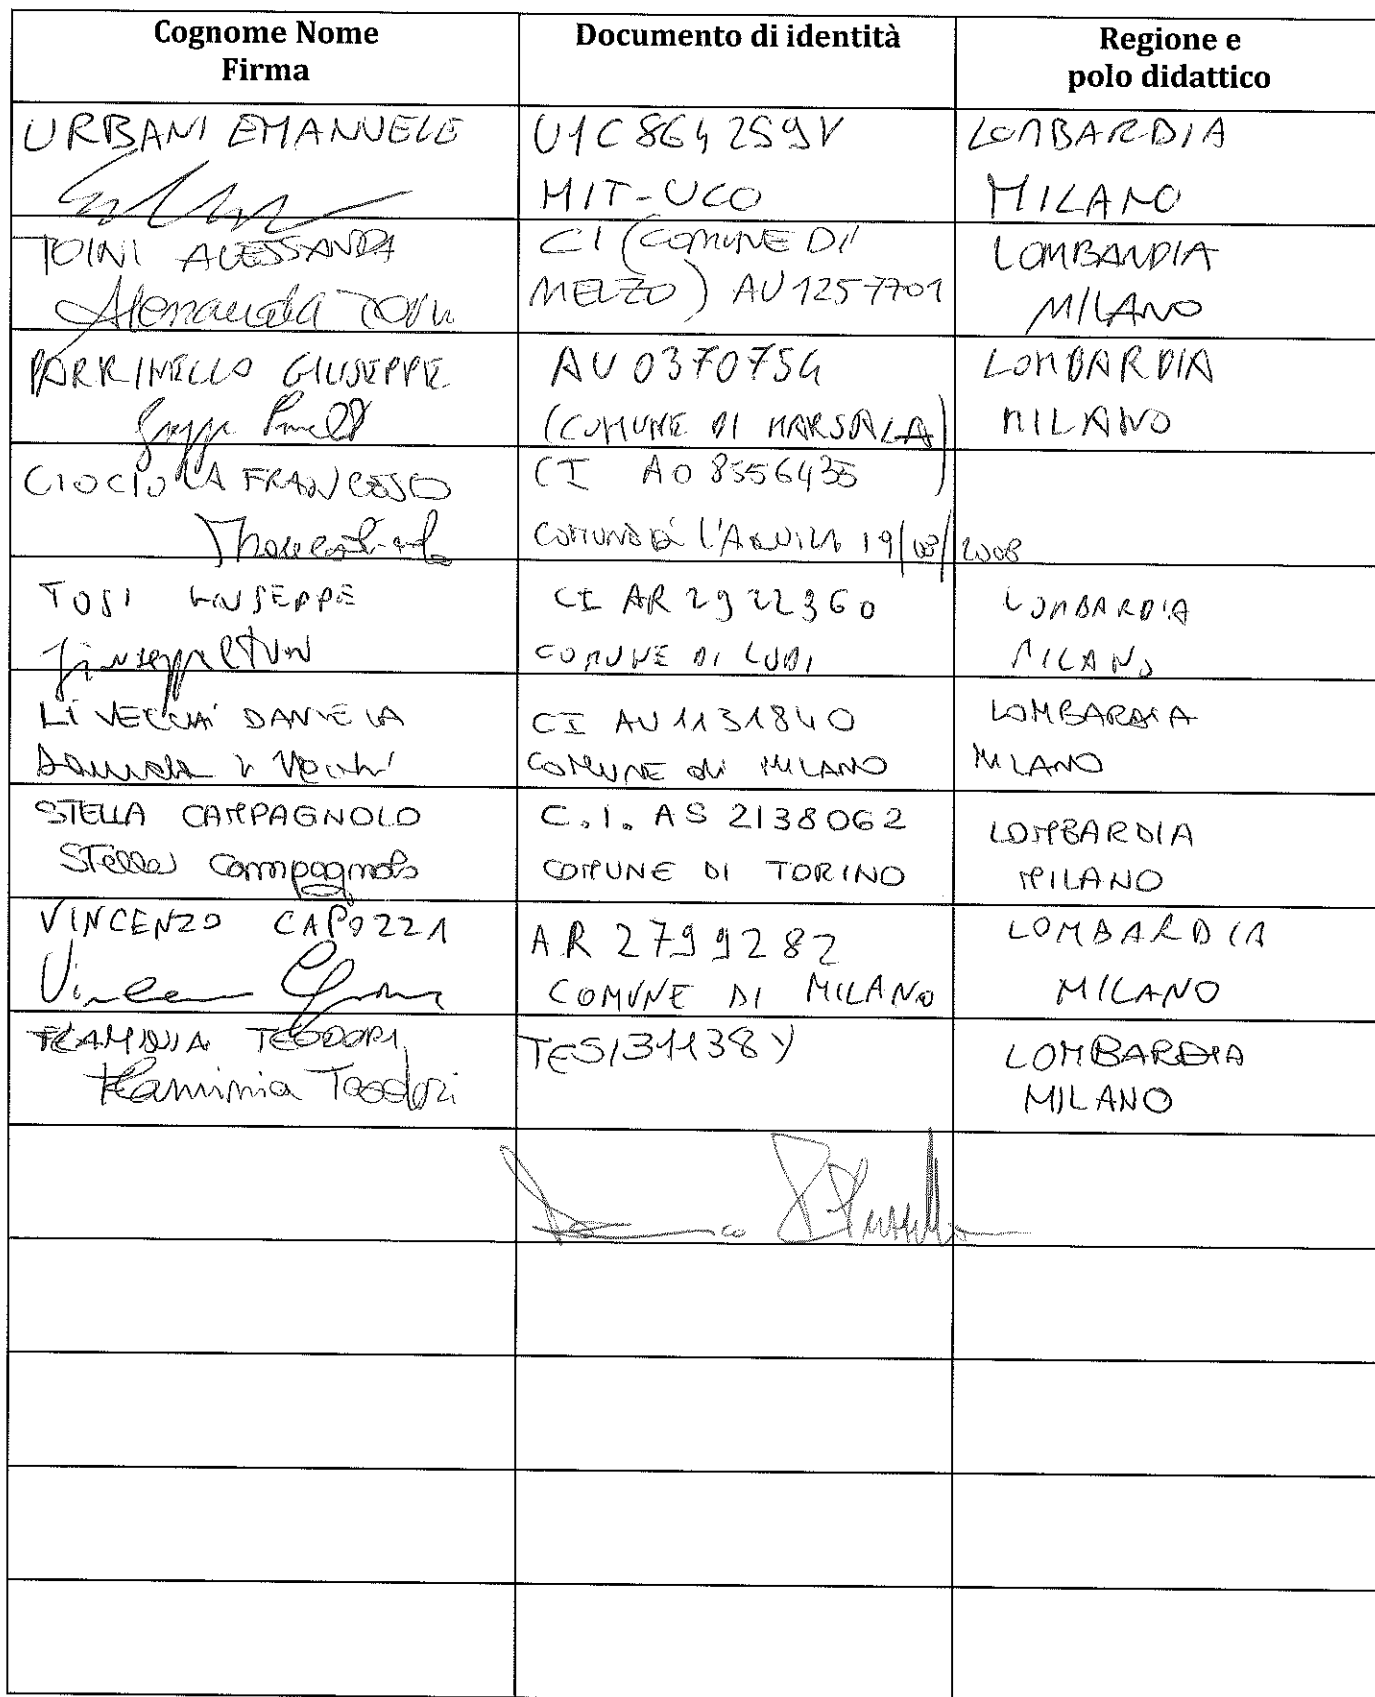 Cognome Nome
Firma
Documento di identità
Regione e
polo didattico
URBANI EMANUELE
U1C864259V
MIT-UCO
LOMBARDIA
MILANO
TOINI ALESSANDRA
Alessandra Toini
CI (COMUNE DI
MELZO) AV 1257701
LOMBARDIA
MILANO
PARRINELLO GIUSEPPE
AU 0370754
(COMUNE DI MARSALA)
LOMBARDIA
MILANO
CIOCIOLA FRANCESCO
CI AO 8556435
COMUNE DI L'AQUILA 19/03/2008
TOSI GIUSEPPE
Giuseppe Tosi
CI AR 2922360
COMUNE DI LODI
LOMBARDIA
MILANO
LI VECCHI DANIELA
Daniela Li Vecchi
CI AU 1131840
COMUNE di MILANO
LOMBARDIA
MILANO
STELLA CAMPAGNOLO
Stella Campagnolo
C.I. AS 2138062
COMUNE DI TORINO
LOMBARDIA
MILANO
VINCENZO CAPOZZI
AR 2799282
COMUNE DI MILANO
LOMBARDIA
MILANO
FLAMINIA TEODORI
Flaminia Teodori
TES131138Y
LOMBARDIA
MILANO